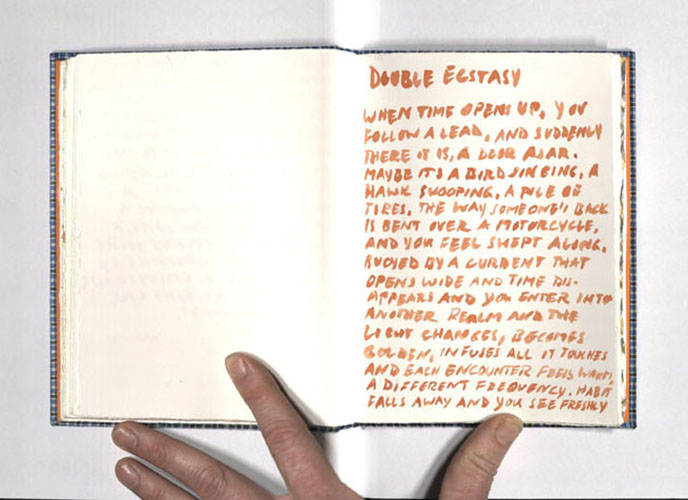 DOUBLE ECSTASY
WHEN TIME OPENS UP, YOU
FOLLOW A LEAD, AND SUDDENLY
THERE IT IS, A DOOR AJAR.
MAYBE IT'S A BIRD SINGING, A
HAWK SWOOPING, A PILE OF
TIRES, THE WAY SOMEONE'S BACK
IS BENT OVER A MOTORCYCLE,
AND YOU FEEL SWEPT ALONG,
BUOYED BY A CURRENT THAT
OPENS WIDE AND TIME DIS-
APPEARS AND YOU ENTER INTO
ANOTHER REALM AND THE
LIGHT CHANGES, BECOMES
GOLDEN, INFUSES ALL IT TOUCHES
AND EACH ENCOUNTER FEELS WARM,
A DIFFERENT FREQUENCY. HABIT
FALLS AWAY AND YOU SEE FRESHLY